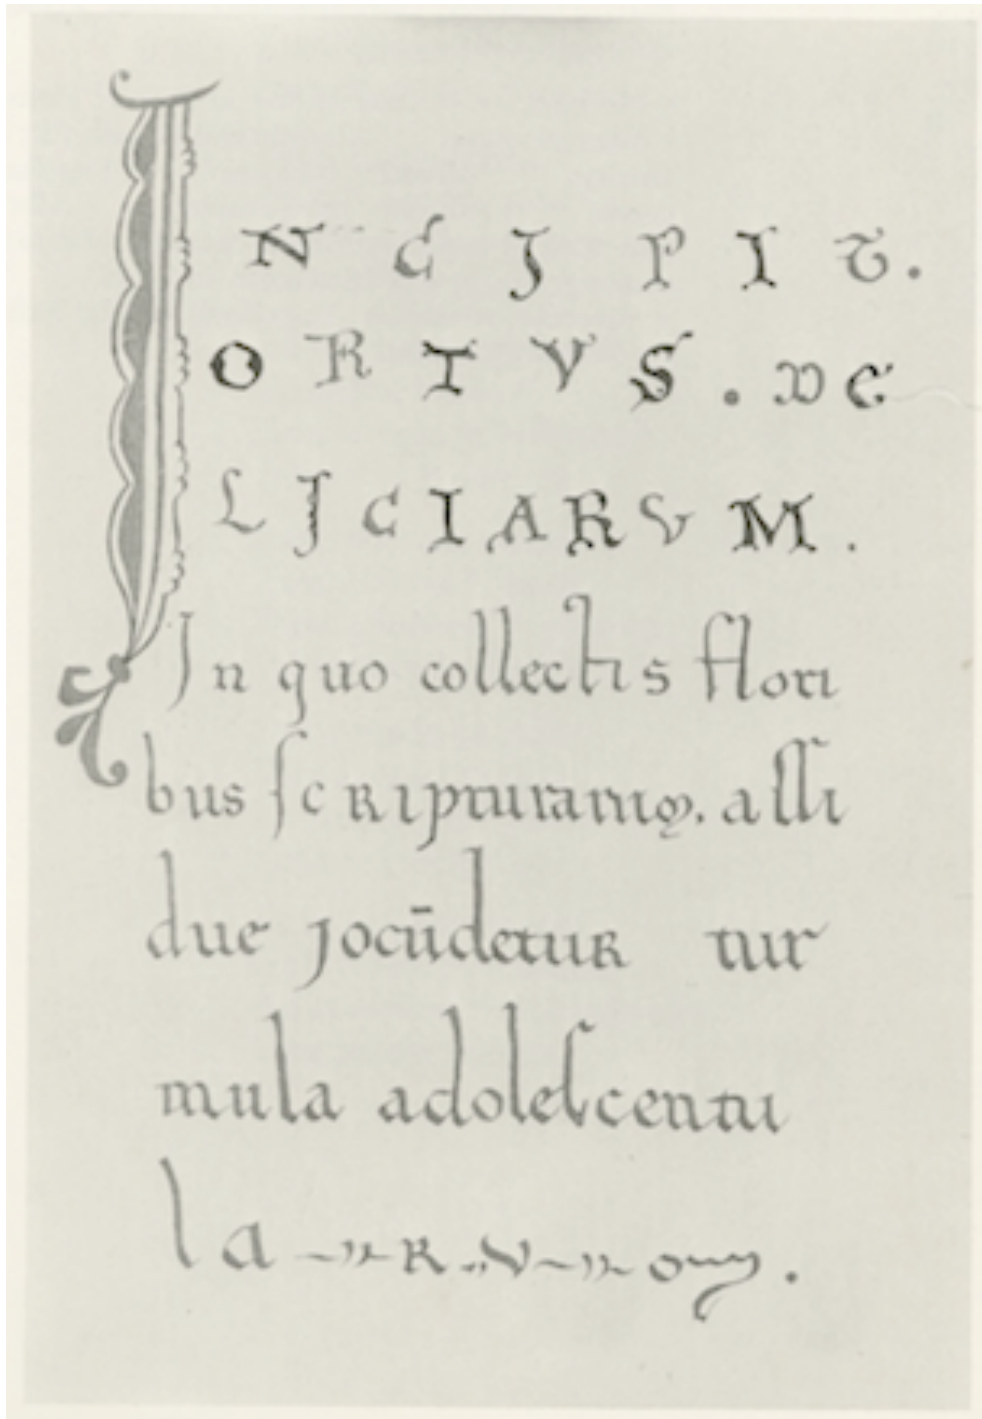 INCIPIT.
ORTVS. DE
LICIARVM.
Jn quo collectis flori
bus ſcripturarum. aſſi
due jocūdetur tur
mula adoleſcentu
la